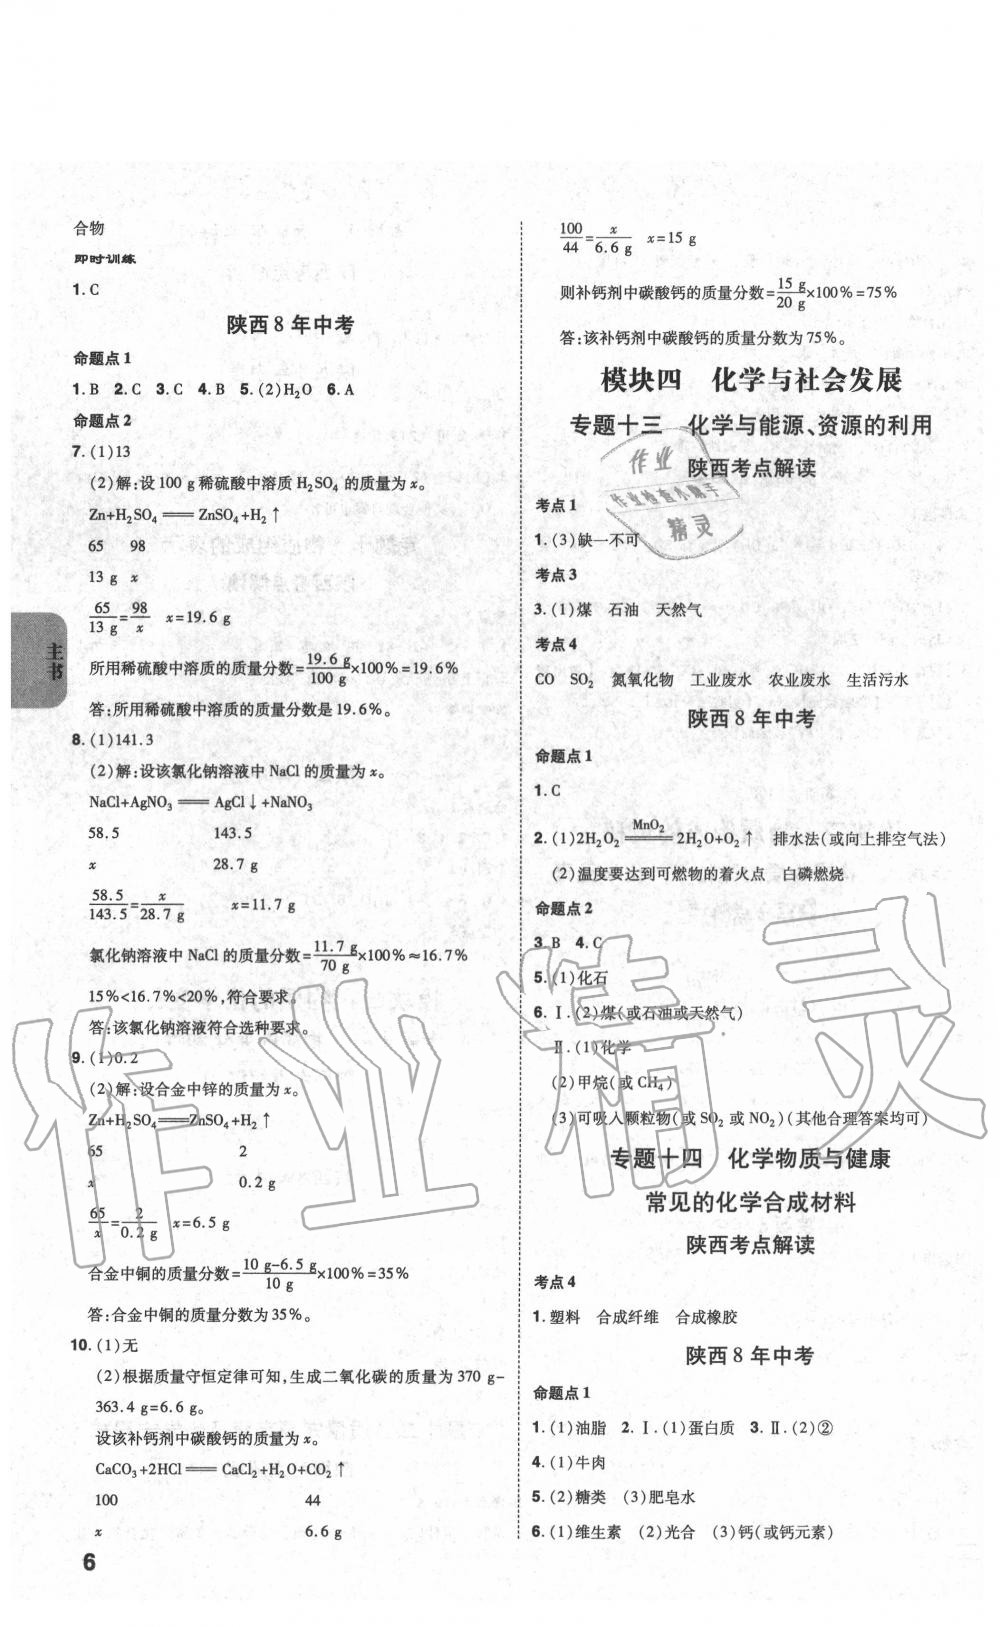 合物
即时训练
1. C
陕西8年中考
命题点1
1. B 2. C 3. C 4. B 5. (2)H₂O 6. A
命题点2
7. (1)13
(2)解:设100 g稀硫酸中溶质H₂SO₄的质量为x。
Zn+H₂SO₄══ZnSO₄+H₂↑
65 98
13 g x
65/13 g=98/x x=19.6 g
所用稀硫酸中溶质的质量分数=19.6 g/100 g×100%=19.6%
答:所用稀硫酸中溶质的质量分数是19.6%。
8. (1)141.3
(2)解:设该氯化钠溶液中NaCl的质量为x。
NaCl+AgNO₃══AgCl↓+NaNO₃
58.5 143.5
x 28.7 g
58.5/143.5=x/28.7 g x=11.7 g
氯化钠溶液中NaCl的质量分数=11.7 g/70 g×100%≈16.7%
15%<16.7%<20%,符合要求。
答:该氯化钠溶液符合选种要求。
9. (1)0.2
(2)解:设合金中锌的质量为x。
Zn+H₂SO₄══ZnSO₄+H₂↑
65 2
x 0.2 g
65/x=2/0.2 g x=6.5 g
合金中铜的质量分数=10 g-6.5 g/10 g×100%=35%
答:合金中铜的质量分数为35%。
10. (1)无
(2)根据质量守恒定律可知,生成二氧化碳的质量为370 g-
363.4 g=6.6 g。
设该补钙剂中碳酸钙的质量为x。
CaCO₃+2HCl══CaCl₂+H₂O+CO₂↑
100 44
x 6.6 g
6
主书
100/44=x/6.6 g x=15 g
则补钙剂中碳酸钙的质量分数=15 g/20 g×100%=75%
答:该补钙剂中碳酸钙的质量分数为75%。
模块四 化学与社会发展
专题十三 化学与能源、资源的利用
陕西考点解读
考点1
1. (3)缺一不可
考点3
3. (1)煤 石油 天然气
考点4
CO SO₂ 氮氧化物 工业废水 农业废水 生活污水
陕西8年中考
命题点1
1. C
2. (1)2H₂O₂ MnO₂══ 2H₂O+O₂↑ 排水法(或向上排空气法)
(2)温度要达到可燃物的着火点 白磷燃烧
命题点2
3. B 4. C
5. (1)化石
6. Ⅰ. (2)煤(或石油或天然气)
Ⅱ. (1)化学
(2)甲烷(或CH₄)
(3)可吸入颗粒物(或SO₂或NO₂)(其他合理答案均可)
专题十四 化学物质与健康
常见的化学合成材料
陕西考点解读
考点4
1. 塑料 合成纤维 合成橡胶
陕西8年中考
命题点1
1. (1)油脂 2. Ⅰ. (1)蛋白质 3. Ⅱ. (2)②
4. (1)牛肉
5. (2)糖类 (3)肥皂水
6. (1)维生素 (2)光合 (3)钙(或钙元素)
作业
作业检查小帮手
精灵
作业精灵